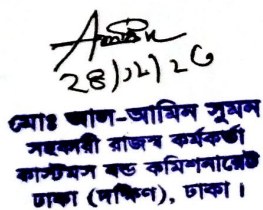 28/12/20
মোঃ আল-আমিন সুমন
সহকারী রাজস্ব কর্মকর্তা
কাস্টমস বন্ড কমিশনারেট
ঢাকা (দক্ষিণ), ঢাকা।